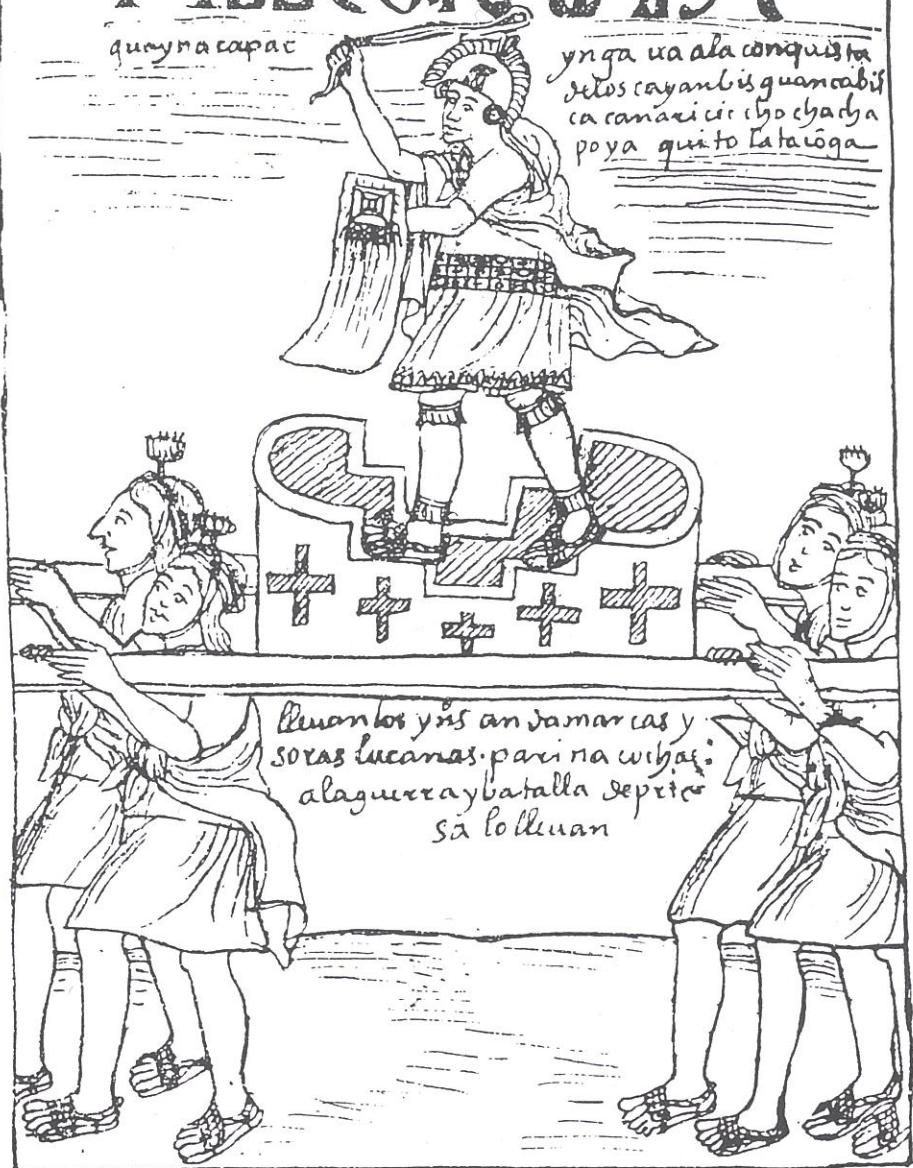 guaynacapac
ynga ua ala conquista
delos cayanbis guancabil
ca canari cic cho chacha
poya quito lataciōga
lleuan los yn̄s andamarcas y
soras lucanas. parinacochas:
ala guerra y batalla depries
sa lo lleuan